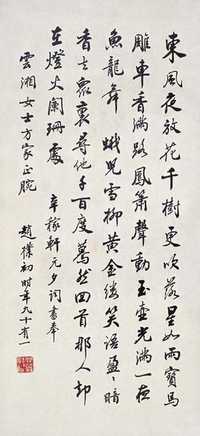 東風夜放花千樹更吹落星如雨寶馬
雕車香滿路鳳簫聲動玉壺光轉一夜
魚龍舞 蛾兒雪柳黃金縷笑語盈〻暗
香去眾裏尋他千百度驀然回首那人却
在燈火闌珊處 辛稼軒元夕詞書奉
雲湘女士方家正腕
趙樸初時年九十有一